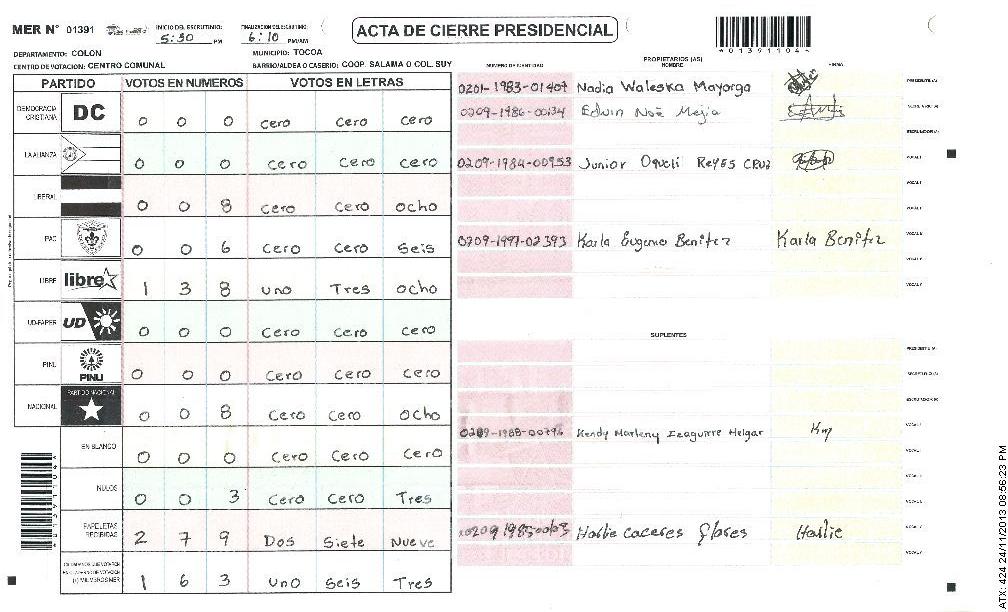 MER N° 01391 INICIO DEL ESCRUTINIO: 5:30 PM FINALIZACION DEL ESCRUTINIO: 6:10 PM/AM ACTA DE CIERRE PRESIDENCIAL *01391104*
DEPARTAMENTO: COLON MUNICIPIO: TOCOA
CENTRO DE VOTACION: CENTRO COMUNAL BARRIO/ALDEA O CASERIO: COOP. SALAMA O COL. SUY
PARTIDO VOTOS EN NUMEROS VOTOS EN LETRAS
DEMOCRACIA CRISTIANA DC 0 0 0 cero cero cero
LA ALIANZA 0 0 0 cero cero cero
LIBERAL 0 0 8 cero cero ocho
PAC 0 0 6 cero cero seis
LIBRE libre 1 3 8 uno Tres ocho
UD-FAPER UD 0 0 0 cero cero cero
PINU PINU 0 0 0 cero cero cero
NACIONAL PARTIDO NACIONAL 0 0 8 cero cero ocho
EN BLANCO 0 0 0 cero cero cero
NULOS 0 0 3 cero cero Tres
PAPELETAS RECIBIDAS 2 7 9 Dos Siete Nueve
1 6 3 uno Seis Tres
NUMERO DE IDENTIDAD PROPIETARIOS (AS) NOMBRE FIRMA
0201-1983-01407 Nadia Waleska Mayorga PRESIDENTE (A)
0209-1986-00134 Edwin Noé Mejia SECRETARIO (A)
ESCRUTADOR (A)
0209-1984-00953 Junior Oqueli REYES CRUZ VOCAL I
VOCAL II
VOCAL III
0209-1997-02393 Karla Eugenia Benitez Karla Benitez VOCAL IV
VOCAL V
VOCAL VI
SUPLENTES
PRESIDENTE (A)
SECRETARIO (A)
ESCRUTADOR (A)
0209-1988-00796 Kendy Marleny Izaguirre Melgar Km VOCAL I
VOCAL II
VOCAL III
VOCAL IV
Harlie caceres flores Harlie VOCAL V
VOCAL VI
ATX: 424 24/11/2013 08:56:23 PM